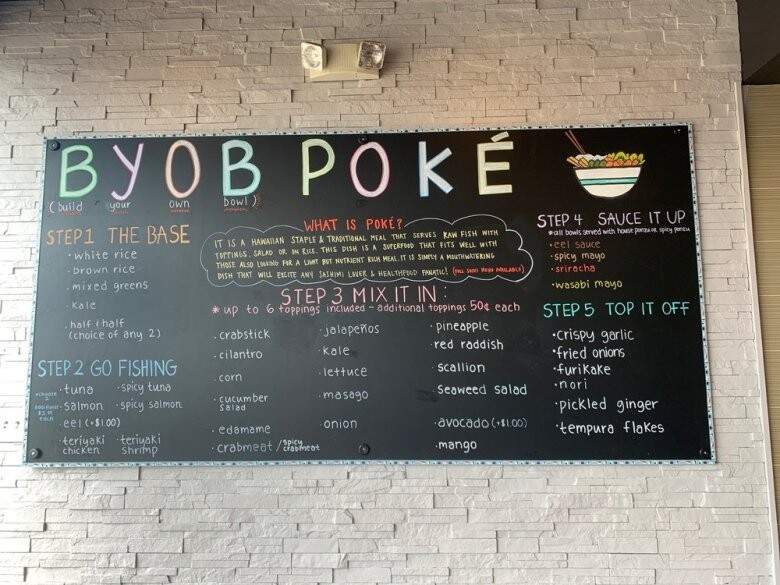 BYOB POKÉ
(build your own bowl)
STEP 1 THE BASE
· white rice
· brown rice
· mixed greens
· Kale
· half & half
(choice of any 2)
STEP 2 GO FISHING
· tuna
· spicy tuna
· salmon
· spicy salmon
· eel (+$1.00)
· teriyaki chicken
· teriyaki shrimp
WHAT IS POKÉ?
IT IS A HAWAIIAN STAPLE & TRADITIONAL MEAL THAT SERVES RAW FISH WITH
TOPPINGS, SALAD OR ON RICE. THIS DISH IS A SUPERFOOD THAT FITS WELL WITH
THOSE ALSO LOOKING FOR A LIGHT BUT NUTRIENT RICH MEAL. IT IS SIMPLY A MOUTHWATERING
DISH THAT WILL EXCITE ANY SASHIMI LOVER & HEALTHFOOD FANATIC! (FULL SUSHI MENU AVAILABLE)
STEP 3 MIX IT IN :
* up to 6 toppings included - additional toppings 50¢ each
· crabstick
· cilantro
· corn
· cucumber salad
· edamame
· crabmeat / spicy crabmeat
· jalapeños
· Kale
· lettuce
· masago
· onion
· pineapple
· red raddish
· scallion
· seaweed salad
· avocado (+$1.00)
· mango
STEP 4 SAUCE IT UP
*all bowls served with house ponzu or spicy ponzu
· eel sauce
· spicy mayo
· sriracha
· wasabi mayo
STEP 5 TOP IT OFF
· crispy garlic
· fried onions
· furikake
· nori
· pickled ginger
· tempura flakes